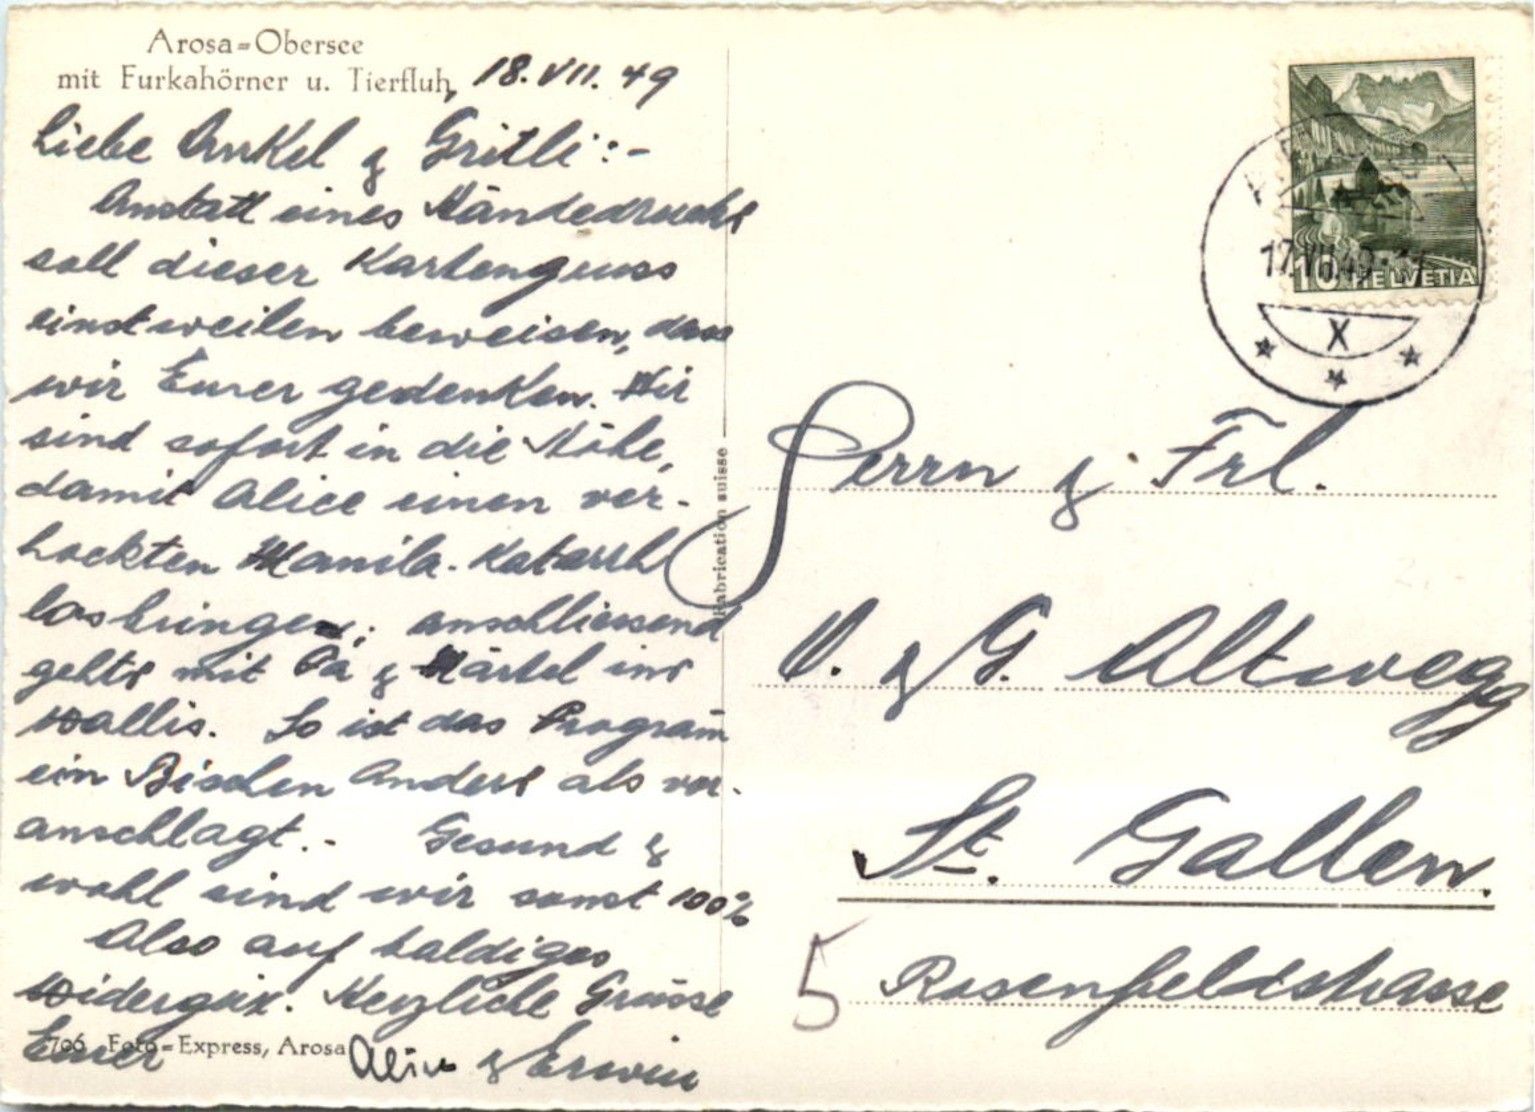 Arosa=Obersee
mit Furkahörner u. Tierfluh,
18. VII. 49
Liebe Onkel & Gritli:-
Anstatt eines Händedrucks
soll dieser Kartengruss
einstweilen beweisen, dass
wir Eurer gedenken. Wir
sind sofort in die Höhe,
damit Alice einen ver-
hockten Manila-Katarrh
losbringe; anschliessend
gehts mit Pa & Märtel ins
Wallis. So ist das Program̄
ein Bischen Anders als vor-
anschlagt.- Gesund &
wohl sind wir sonst 100%
Also auf baldiges
Widergux. Herzliche Grüsse
Eurer Alice & Erwin
706 Foto=Express, Arosa
Fabrication suisse
17.VII.49
10 HELVETIA
X
Herrn & Frl.
V. & G. Altwegg
St. Gallen.
5 Rosenfeldstrasse